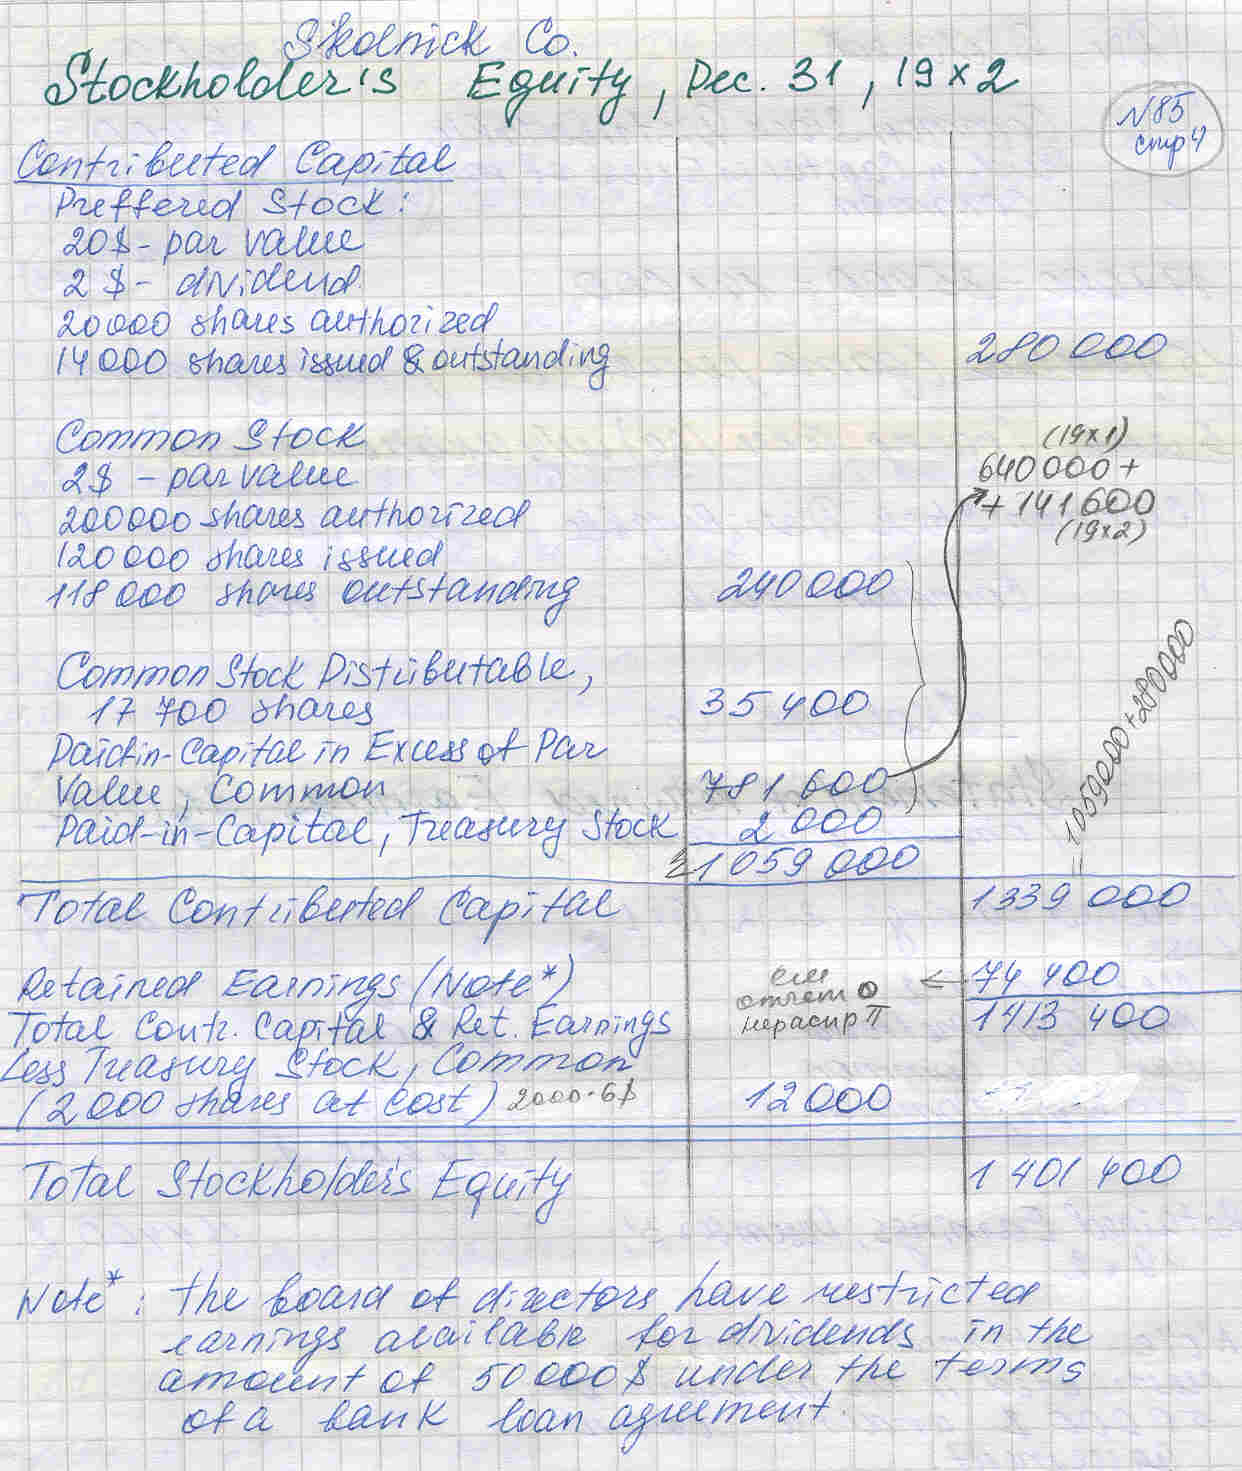 Skolnick Co.
Stockholder's Equity, Dec. 31, 19x2
N85
стр 4
Contributed Capital
Preffered Stock:
20$ - par value
2$ - dividend
20000 shares authorized
14000 shares issued & outstanding 280 000
Common Stock
2$ - par value
200000 shares authorized
120000 shares issued
118000 shares outstanding 240000
(19x1)
640000 +
+ 141600
(19x2)
Common Stock Distributable,
17 700 shares 35 400
Paid-in-Capital in Excess of Par
Value, Common 781 600
Paid-in-Capital, Treasury Stock 2 000
Σ 1 059 000
= 1059000 + 280000
Total Contributed Capital 1339 000
Retained Earnings (Note*) см отчет о нераспр П ← 74 400
Total Contr. Capital & Ret. Earnings 1413 400
Less Treasury Stock, Common
(2000 shares at cost) 2000·6$ 12000
Total Stockholder's Equity 1 401 400
Note*: the board of directors have restricted
earnings available for dividends in the
amount of 50000$ under the terms
of a bank loan agreement.